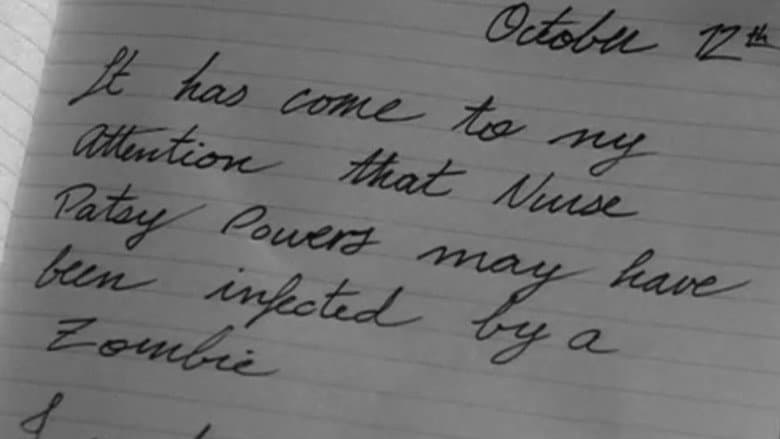 October 12th
It has come to my
Attention that Nurse
Patsy Powers may have
been infected by a
Zombie